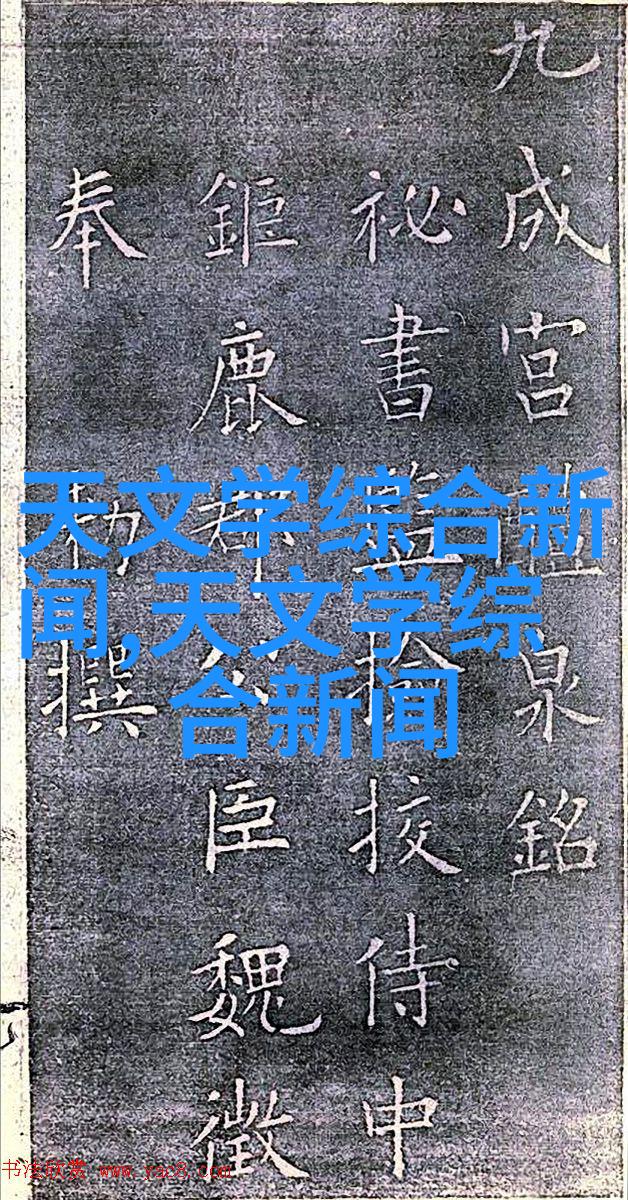 九成宮醴泉銘
祕書監撿挍侍中
鉅鹿郡公臣魏徵
奉勑撰
天文学综合新
闻,天文学综
合新闻
书法欣赏 www.yac8.com